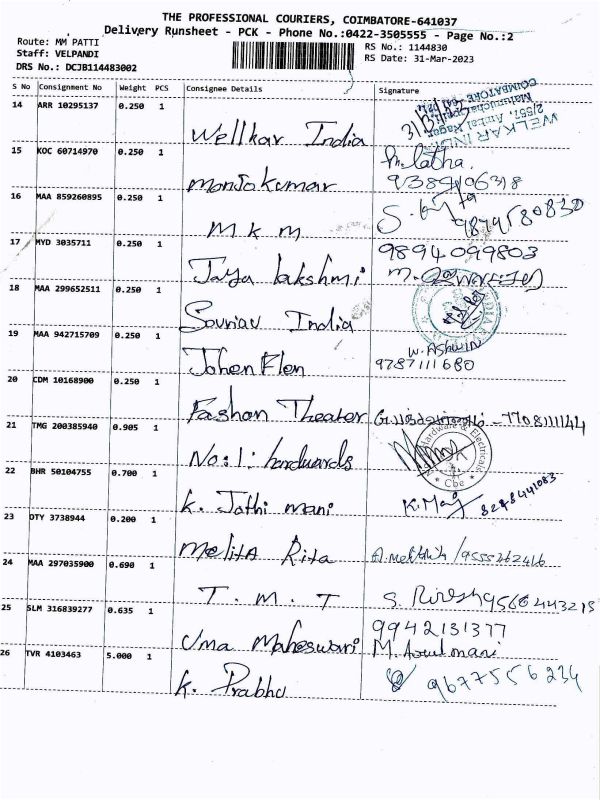 THE PROFESSIONAL COURIERS, COIMBATORE-641037
Delivery Runsheet - PCK - Phone No.:0422-3505555 - Page No.:2
Route: MM PATTI
RS No.: 1144830
Staff: VELPANDI
RS Date: 31-Mar-2023
DRS No.: DCJB114483002
S No Consignment No Weight PCS Consignee Details Signature
14 ARR 10295137 0.250 1
Wellkar India
WELKAR INDIA
2/557, Anbal Nagar
COIMBATORE
15 KOC 60714970 0.250 1
Manjokumar
latha.
16 MAA 859260895 0.250 1
M K M
9879580830
17 MYD 3035711 0.250 1
9894099803
Jaya lakshmi
18 MAA 299652511 0.250 1
Sourav India
19 MAA 942715709 0.250 1
W. ASHWIN
Johen Flen
9787111680
20 CDM 10168900 0.250 1
Fashon Theater
7708111144
21 TMG 200385940 0.905 1
No:1: hardwards
Hardware & Electricals
Cbe
22 BHR 50104755 0.700 1
K. Jothi mani
K. Maj 8248441083
23 OTY 3738944 0.200 1
Melita Rita
24 MAA 297035900 0.690 1
T. M. T
25 SLM 316839277 0.635 1
9942131377
Uma Maheswari M. Arulmani
26 TVR 4103463 5.000 1
K. Prabhu
9677556234